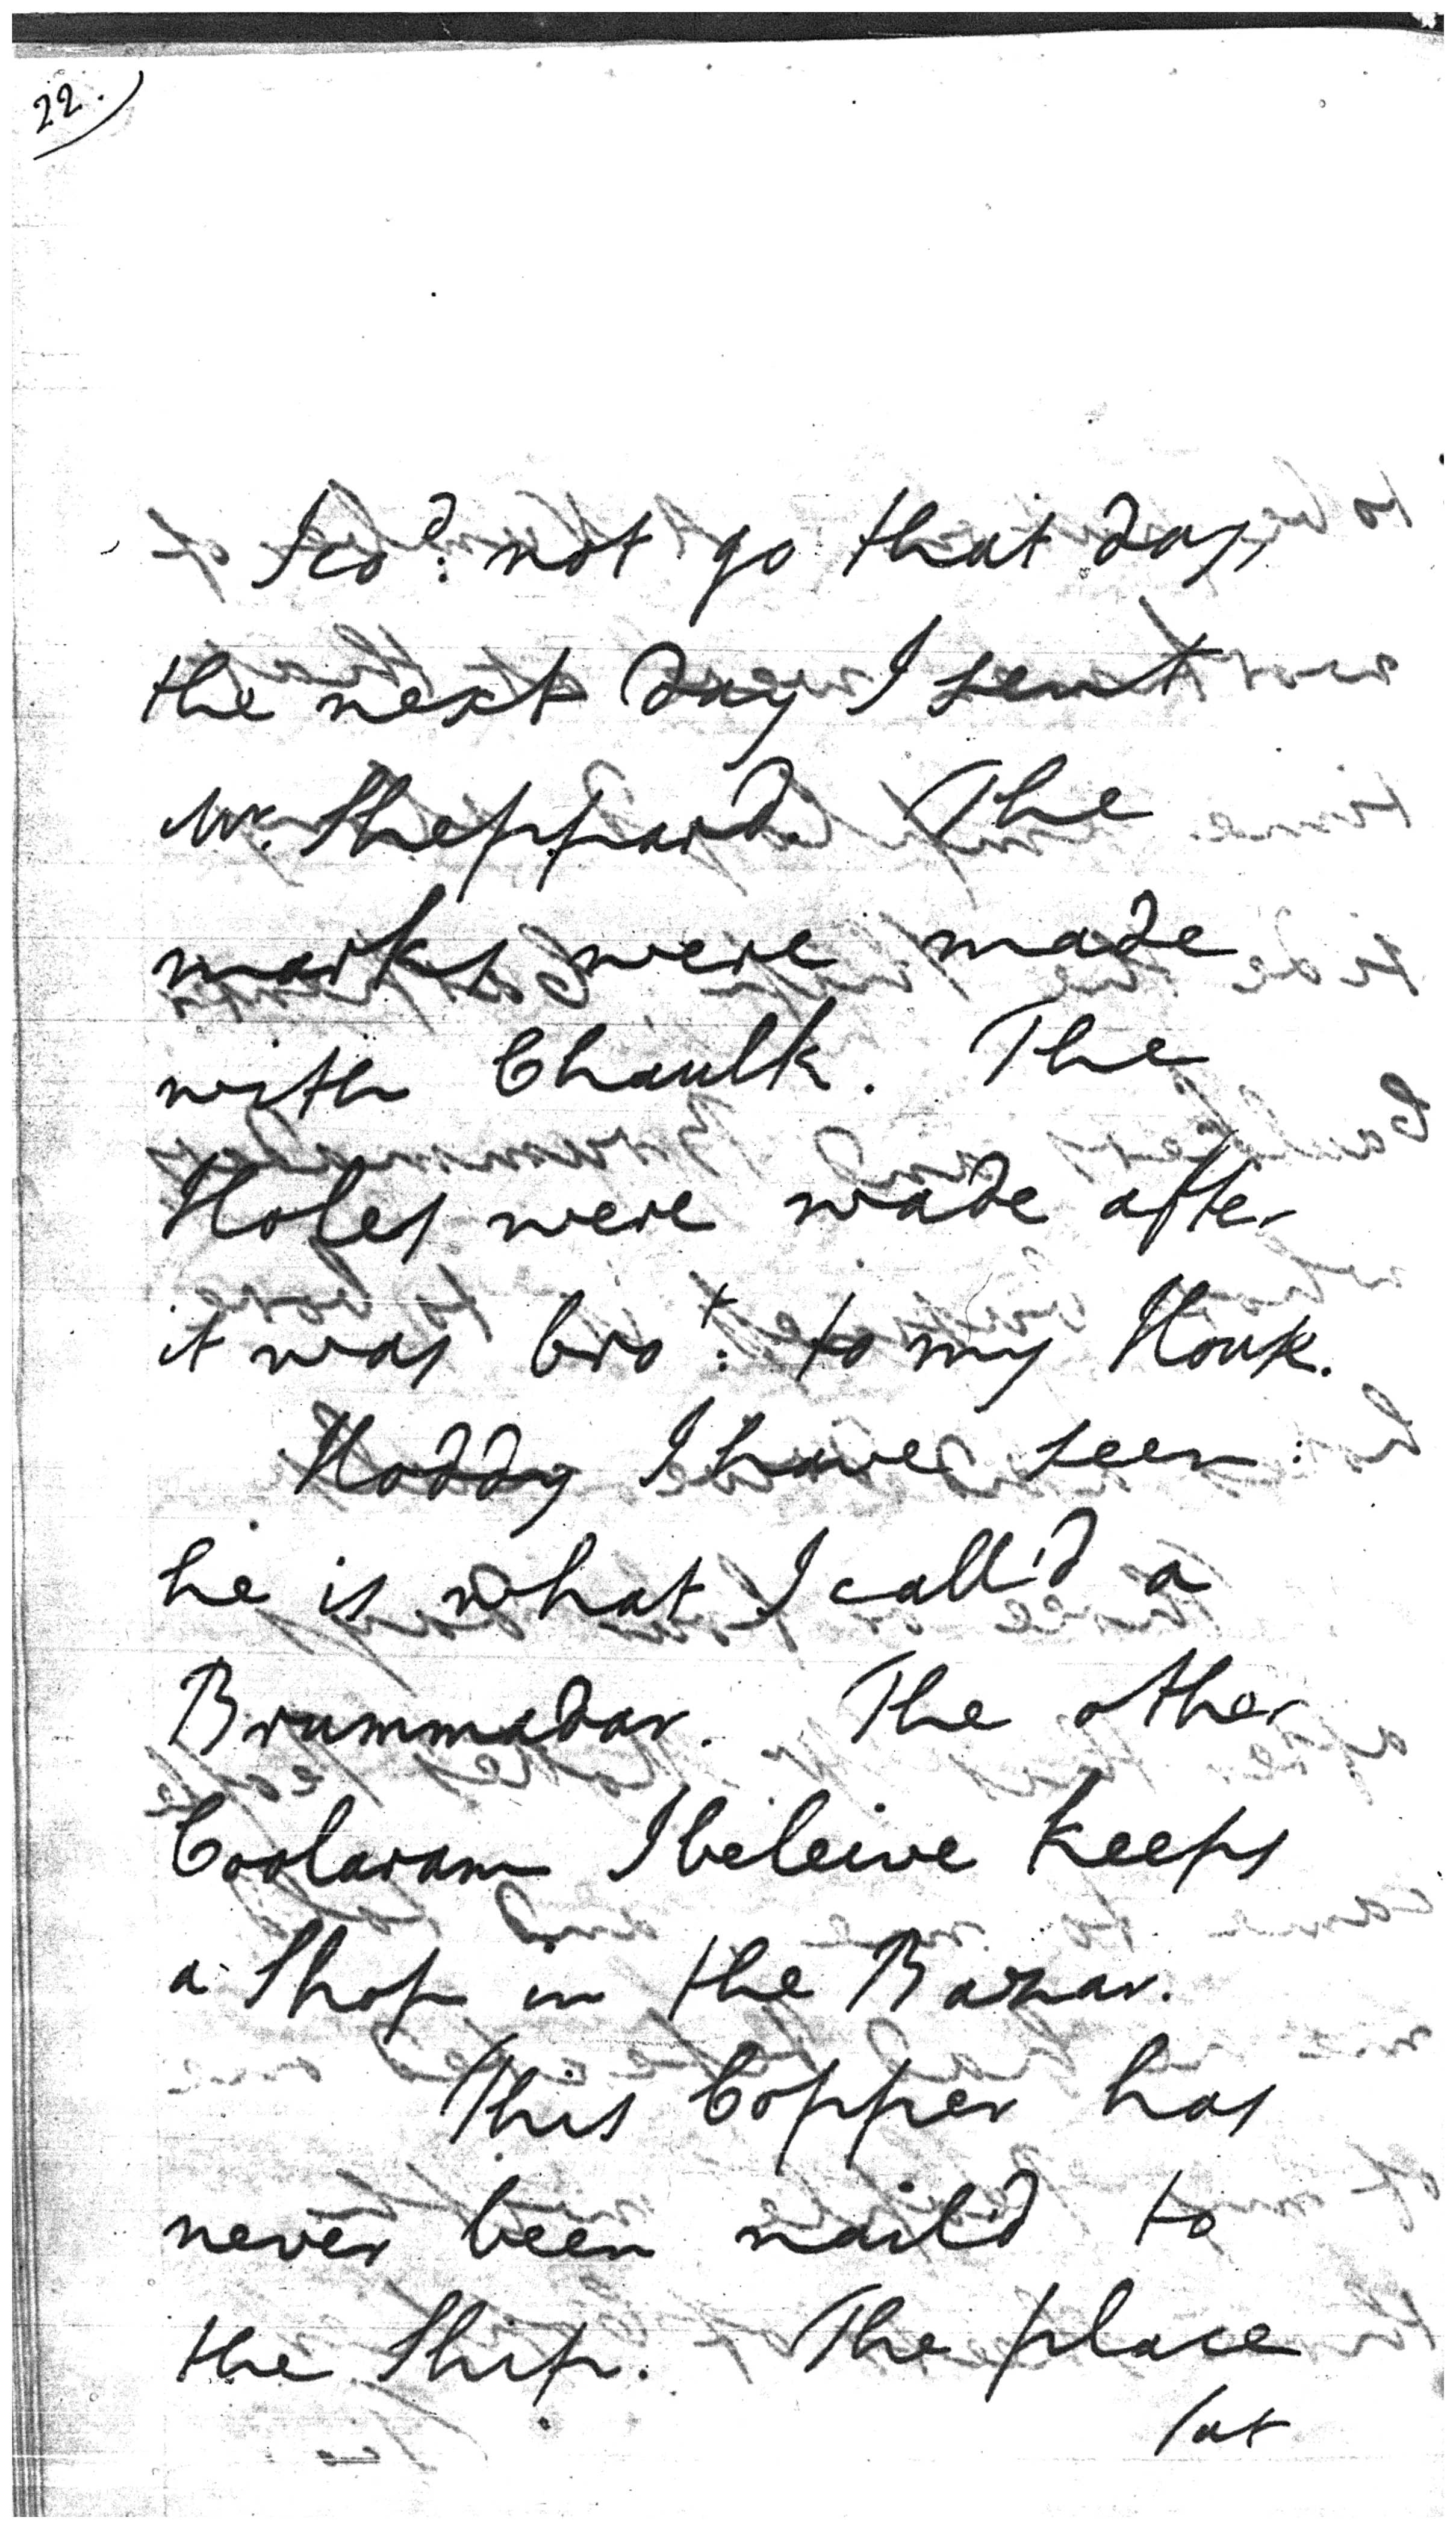 22.
I co^d: not go that day,
the next day I sent
Mr. Sheppard. The
marks were made
with Chaulk. The
Holes were made after
it was bro^t: to my House.
Hoddy I have seen:
he is what I call'd a
Brummadar. The other
Coolaram I beleive keeps
a Shop in the Bazar.
This Copper has
never been naild to
the Ship. The place
/at